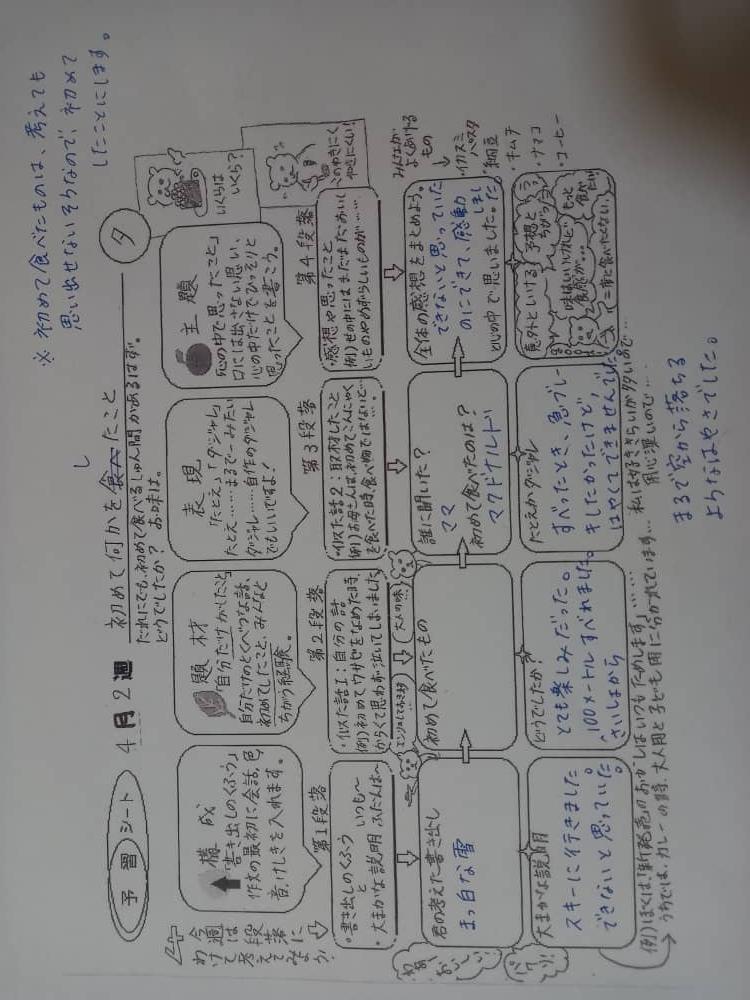 ※初めて食べたものは、考えても
思い出せないそうなので、初めて
したことにします。
予習シート
4月2週
初めて何かを食べたこと
し
だれにでも、初めて食べるしゅん間があるはず。
どうでしたか? お味は。
夕
今週は
段落に
わけて
考えてみよう!
構成
「書き出しのくふう」
作文の最初に会話、色、
音、けしきを入れます。
題材
「自分だけがしたこと」
自分だけのとくべつな話、
初めてしたこと、みんなと
ちがう経験。
表現
「たとえ」「ダジャレ」
たとえ……まるで~みたい
ダジャレ……自作のダジャレ
でもいいですよ!
主題
「心の中で思ったこと」
口には出さない思い、
心の中だけでひっそりと
思ったことを書こう。
いくらは
いくら?
このやきにく
やきにくい!
第1段落
・書き出しのくふう
と いつも~
・大まかな説明 ふだんは~
第2段落
・似た話1:自分の話
例)初めてワサビをなめた時、
からくて思わず泣いてしまいました
第3段落
・似た話2:取材したこと
例)お母さんは、初めてこんにゃく
を食べた時、食べ物ではないと…
第4段落
・感想や思ったこと
例)世の中にはまだまだおいし
いものやめずらしいものが……
大人の味
みんなが
よくあげる
もの
・イカスミ
パスタ
・納豆
・キムチ
・ナマコ
・コーヒー
君の考えた書き出し
まっ白な雪
初めて食べたもの
誰に聞いた?
ママ
初めて食べたのは?
マクドナルド
全体の感想をまとめよう。
できないと思っていた
のにできて、感動
しました。
と心の中で思いました。
大まかな説明
スキーに行きました
できないと思っていた。
どうでしたか?
とても楽しみだった。
100メートルすべれました。
さいしょから
たとえかダジャレ
すべったとき、急ブレー
キしたかったけど、
はやくてできませんでした
まるで空から落ちる
ようなはやさでした。
意外といける
予想と
ちがう
味はいいけれど
食感が…
もっと
食べたい
二度と食べたくない
例)ぼくは、「新発売」のおかしはいつもためします」……
うちでは、カレーの時、大人用と子ども用に分かれています…
私は好ききらいが多いので…
用心深いので…